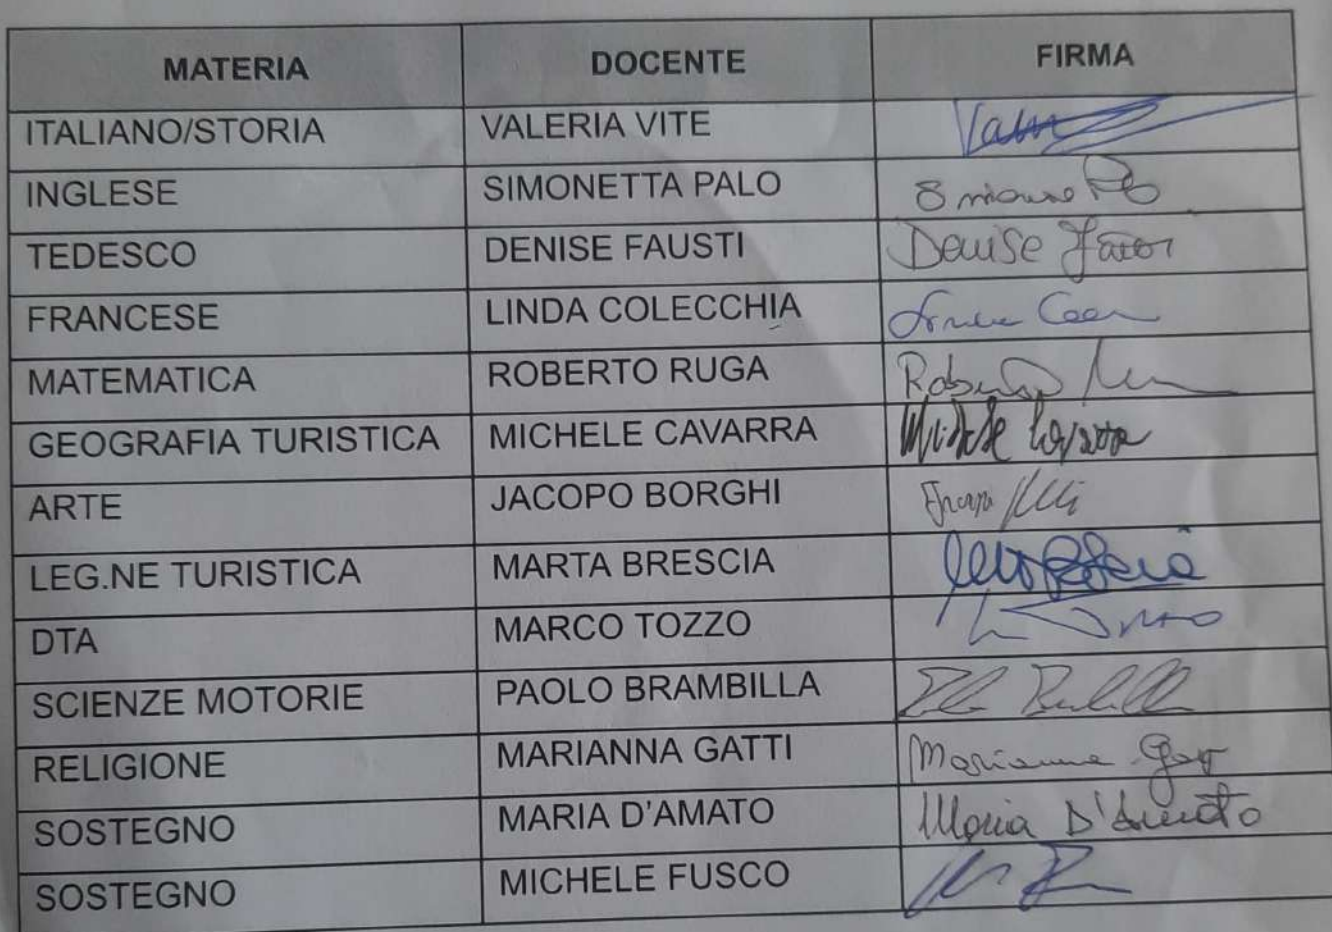 MATERIA DOCENTE FIRMA
ITALIANO/STORIA VALERIA VITE
INGLESE SIMONETTA PALO
TEDESCO DENISE FAUSTI Denise
FRANCESE LINDA COLECCHIA
MATEMATICA ROBERTO RUGA Roberto
GEOGRAFIA TURISTICA MICHELE CAVARRA Michele Cavarra
ARTE JACOPO BORGHI
LEG.NE TURISTICA MARTA BRESCIA
DTA MARCO TOZZO
SCIENZE MOTORIE PAOLO BRAMBILLA
RELIGIONE MARIANNA GATTI Marianna
SOSTEGNO MARIA D'AMATO Maria D'Amato
SOSTEGNO MICHELE FUSCO